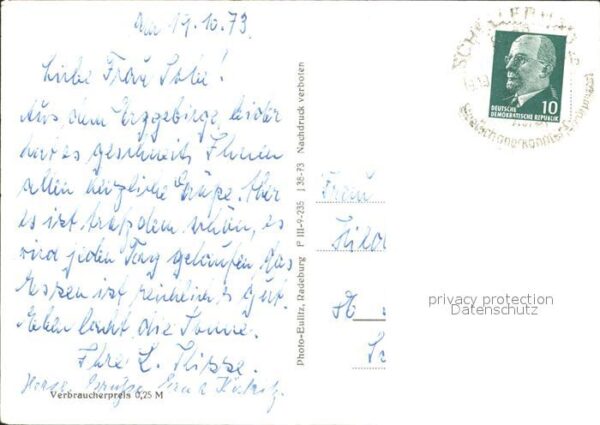 19.10.73.
Liebe Frau
Aus dem Erzgebirge, leider
hat es geschneit, Ihnen
allen herzliche Grüße. Aber
es ist trotzdem schön, es
wird jeden Tag gelaufen das
Essen ist reichlich & gut.
Eben lacht die Sonne.
Ihre L.
Herzl. Grüße
Verbraucherpreis 0,25 M
Photo-Eulitz, Radeburg P III-9-235 J 38-73 Nachdruck verboten
10
DEUTSCHE
DEMOKRATISCHE REPUBLIK
Frau
privacy protection
Datenschutz